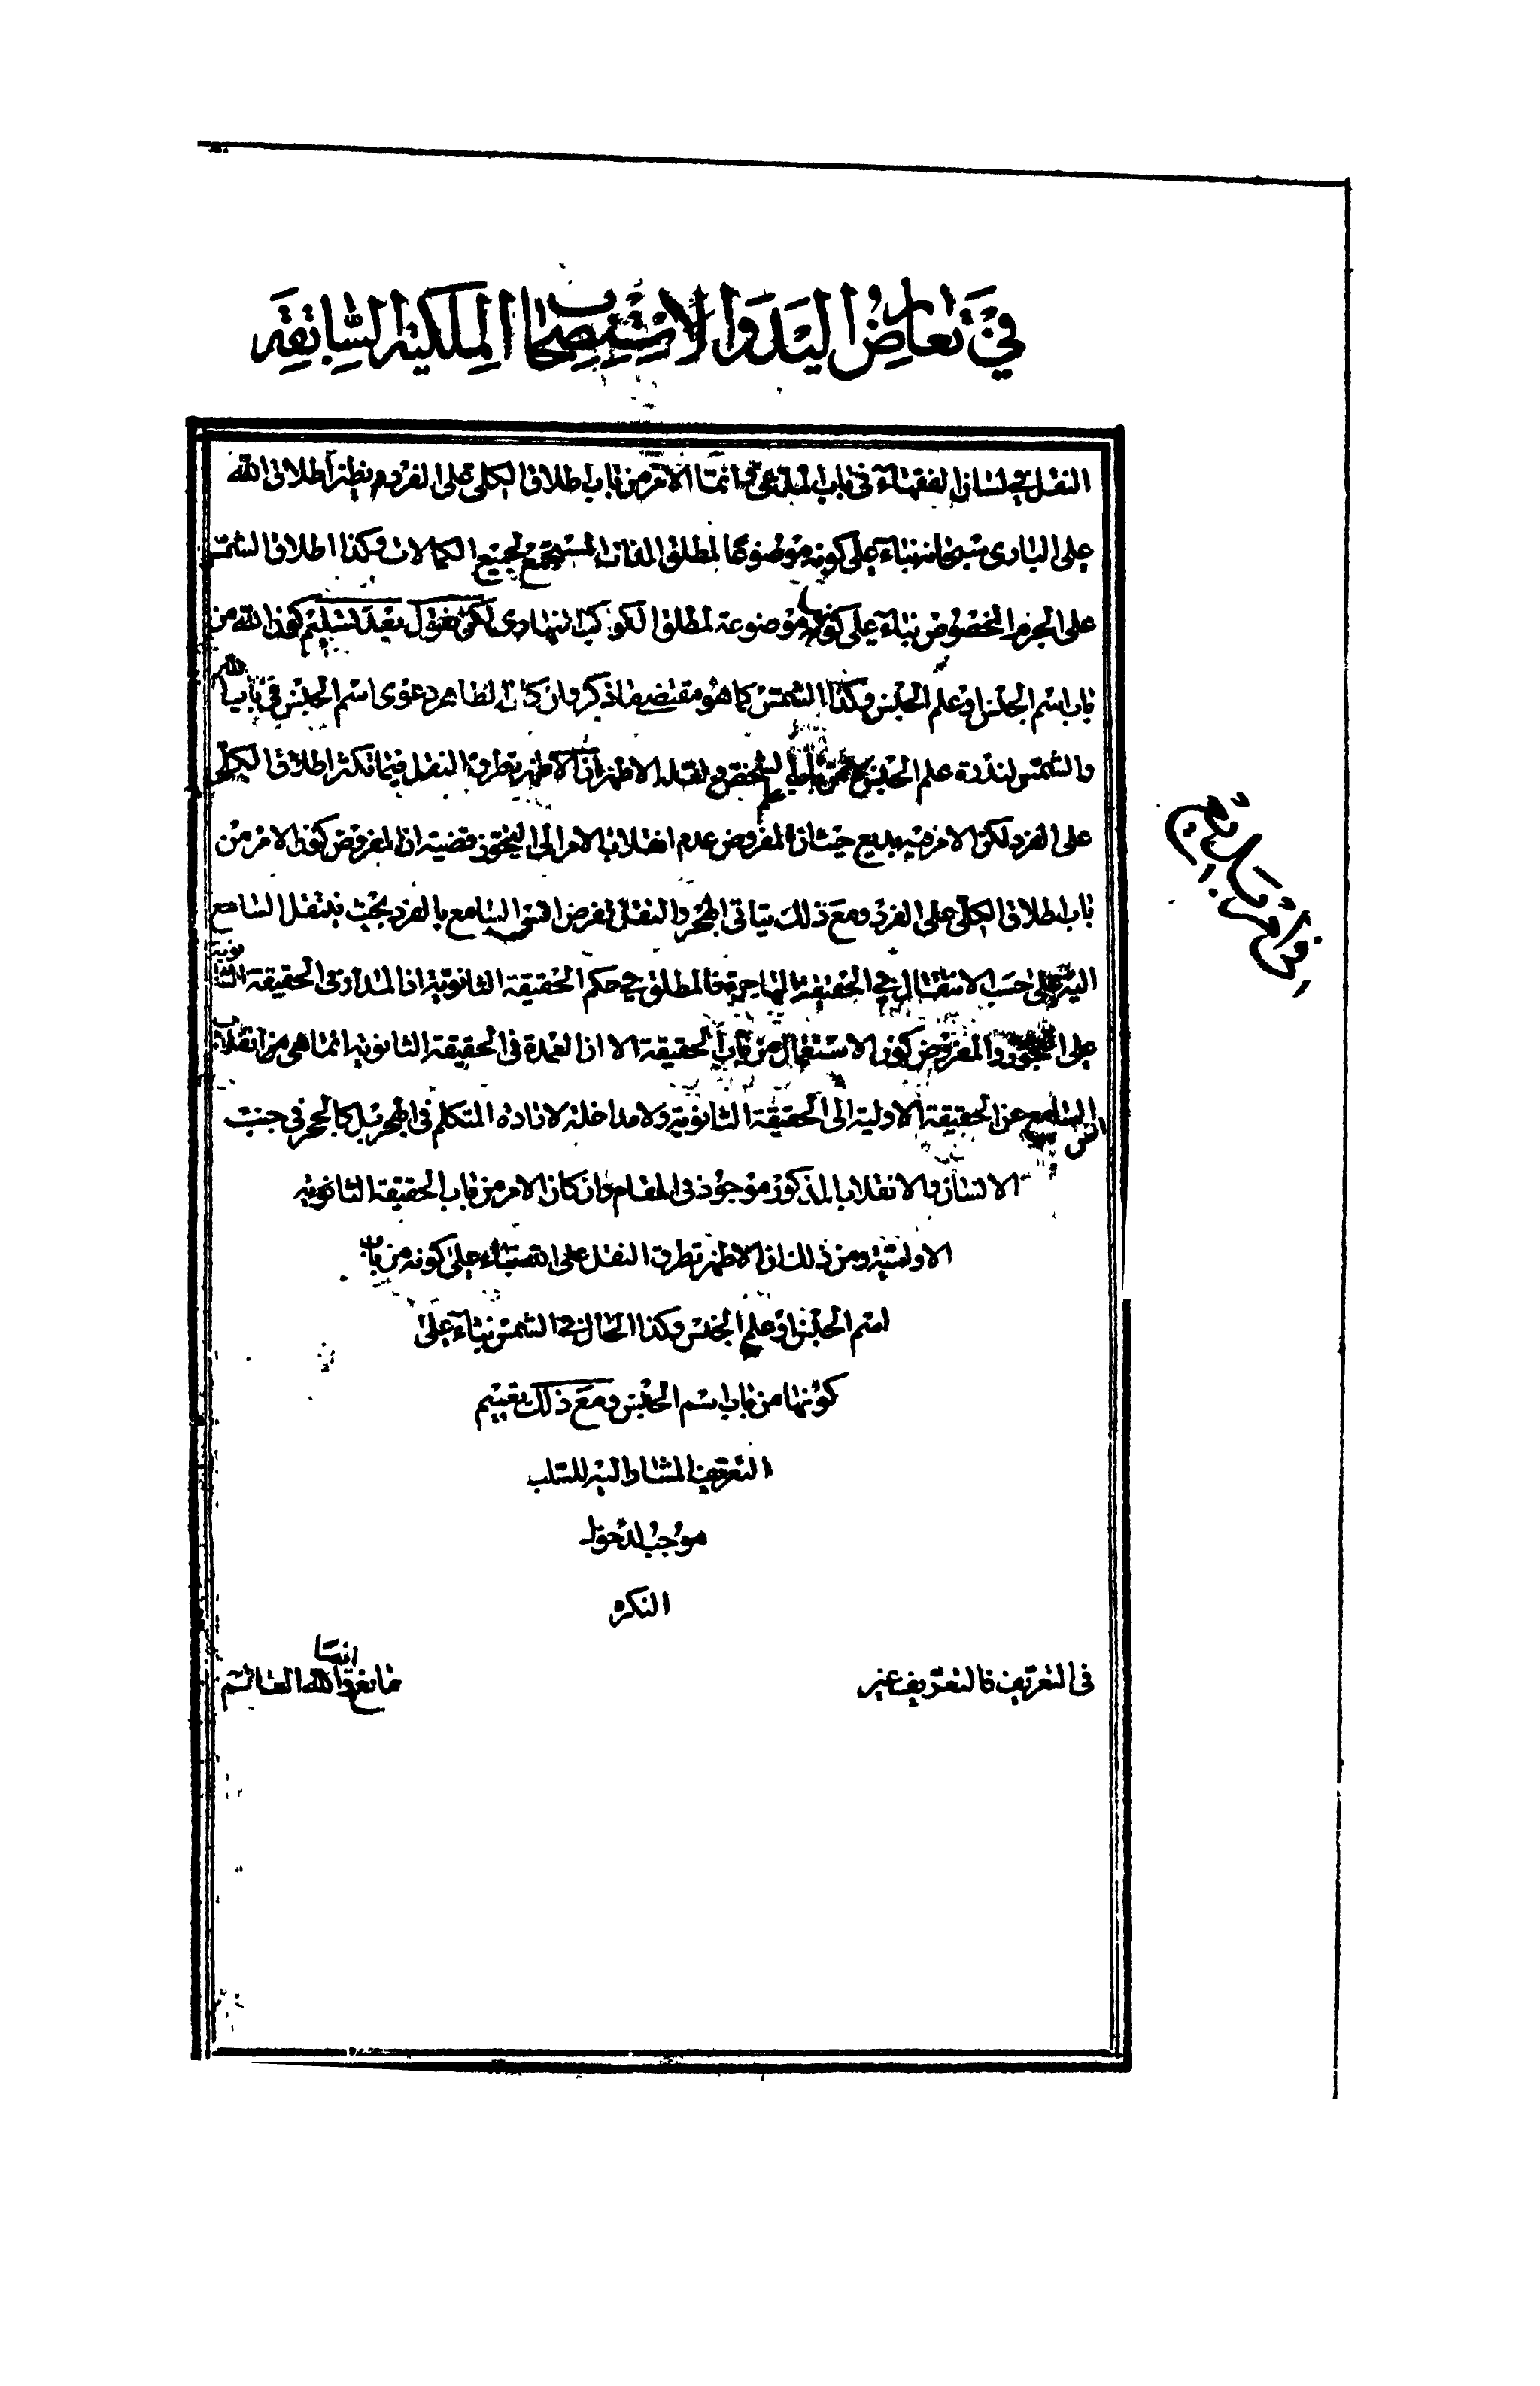 في تعارض اليد والاستصحاب الملكية السابقة
النقل في لسان الفقهاء في باب المدعى وانما الامر من باب اطلاق الكلي على الفرد نظير اطلاق الله
على البارى سبحانه بناء على كونه موضوعا لمطلق الذات المستجمع لجميع الكمالات وكذا اطلاق الشمس
على الجرم المخصوص بناء على كونها موضوعة لمطلق الكوكب النهارى لكن نقول بعد تسليم كون الله من
باب اسم الجنس او علم الجنس وكذا الشمس كما هو مقتضى ما ذكر وان كان الظاهر دعوى اسم الجنس في باب الله
والشمس لندرة علم الجنس الاظهر ان الاظهر تطرق النقل فيما تكثر اطلاق الكلي
على الفرد لكن الامر فيه بديع حيث ان المفروض عدم انقلاب الامر الى التجوز قضية ان المفروض كون الامر من
باب اطلاق الكلي على الفرد ومع ذلك يتاتى الهجر والنقل لفرض انس السامع بالفرد بحيث ينتقل السامع
اليه على حسب الانتقال في الحقيقة المهاجرة فالمطلق في حكم الحقيقة الثانوية اذ المدار في الحقيقة الثانوية
على التجوز والمفروض كون الاستعمال من باب الحقيقة الا ان العمدة في الحقيقة الثانوية انما هي من انقلاب
السامع عن الحقيقة الاولية الى الحقيقة الثانوية ولا مداخلة لارادة المتكلم في الهجر بل كالحجر في جنب
الانسان والانقلاب المذكور موجود في المقام وان كان الامر من باب الحقيقة الثانوية
الاولية ومن ذلك ان الاظهر تطرق النقل على الله بناء على كونه من باب
اسم الجنس او علم الجنس وكذا الحال في الشمس بناء على
كونها من باب اسم الجنس ومع ذلك تعميم
التعريف المشار اليه للسلب
موجب لدخول
النكره
في التعريف فالتعريف غير
مانع والله العالم